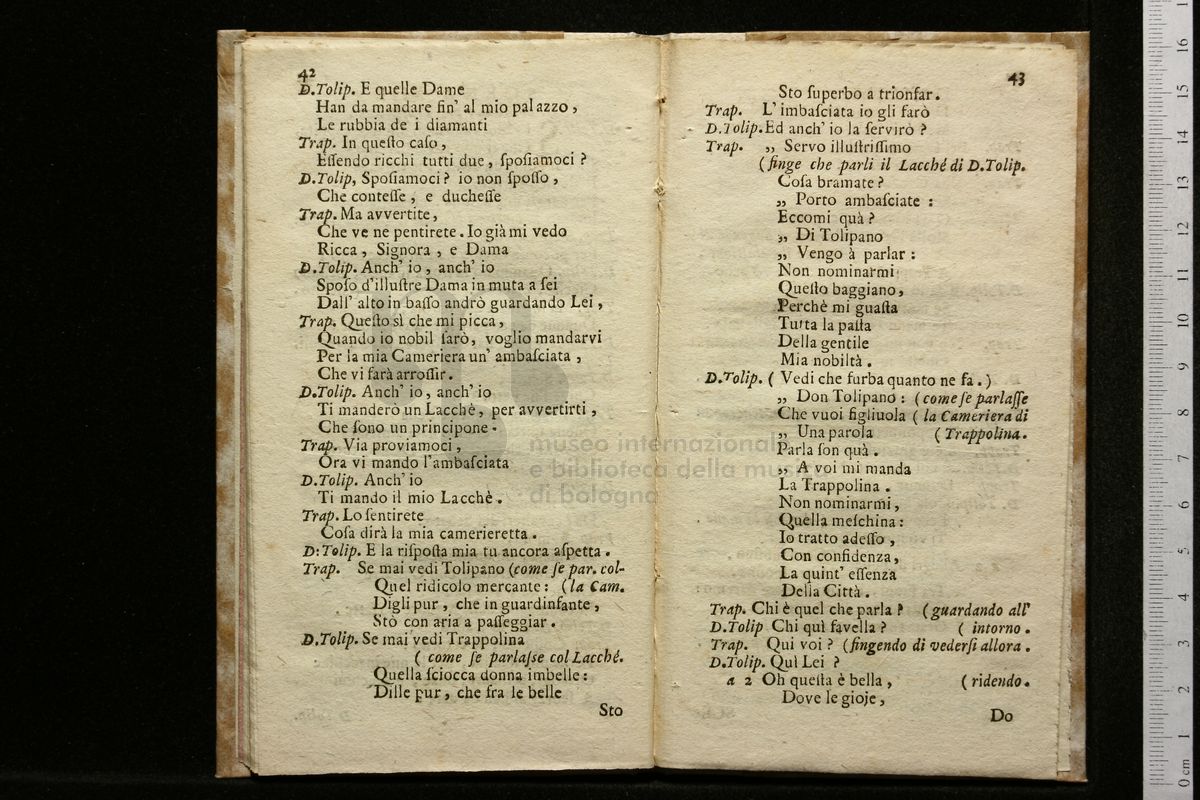 42
D.Tolip. E quelle Dame
Han da mandare fin' al mio palazzo,
Le rubbia de i diamanti
Trap. In queſto caſo,
Eſſendo ricchi tutti due, ſpoſiamoci?
D.Tolip, Spoſiamoci? io non ſpoſſo,
Che conteſſe, e ducheſſe
Trap. Ma avvertite,
Che ve ne pentirete. Io già mi vedo
Ricca, Signora, e Dama
D.Tolip. Anch' io, anch' io
Spoſo d'illuſtre Dama in muta a ſei
Dall' alto in baſſo andrò guardando Lei,
Trap. Queſto sì che mi picca,
Quando io nobil ſarò, voglio mandarvi
Per la mia Cameriera un' ambaſciata,
Che vi farà arroſſir.
D.Tolip. Anch' io, anch' io
Ti manderò un Lacchè, per avvertirti,
Che ſono un principone.
Trap. Via proviamoci,
Ora vi mando l'ambaſciata
D.Tolip. Anch' io
Ti mando il mio Lacchè.
Trap. Lo ſentirete
Coſa dirà la mia camerieretta.
D:Tolip. E la riſpoſta mia tu ancora aſpetta.
Trap. Se mai vedi Tolipano (come ſe par. col-
Quel ridicolo mercante: (la Cam.
Digli pur, che in guardinfante,
Stò con aria a paſſeggiar.
D.Tolip. Se mai vedi Trappolina
( come ſe parlaſse col Lacché.
Quella ſciocca donna imbelle:
Dille pur, che fra le belle
Sto
43
Sto ſuperbo a trionfar.
Trap. L'imbaſciata io gli farò
D.Tolip. Ed anch' io la ſervirò?
Trap. „ Servo illuſtriſſimo
(finge che parli il Lacché di D.Tolip.
Coſa bramate?
„ Porto ambaſciate:
Eccomi quà?
„ Di Tolipano
„ Vengo à parlar:
Non nominarmi
Queſto baggiano,
Perchè mi guaſta
Tutta la paſta
Della gentile
Mia nobiltà.
D.Tolip. ( Vedi che furba quanto ne fa.)
„ Don Tolipano: (come ſe parlaſſe
Che vuoi figliuola ( la Cameriera di
„ Una parola ( Trappolina.
Parla ſon quà.
„ A voi mi manda
La Trappolina.
Non nominarmi,
Quella meſchina:
Io tratto adeſſo,
Con confidenza,
La quint' eſſenza
Della Città.
Trap. Chi è quel che parla? (guardando all'
D.Tolip Chi quì favella? ( intorno.
Trap. Qui voi? (fingendo di vederſi allora.
D.Tolip. Quì Lei?
a 2 Oh queſta è bella, ( ridendo.
Dove le gioje,
Do
museo internazionale
e biblioteca della musica
di bologna
0 cm 1 2 3 4 5 6 7 8 9 10 11 12 13 14 15 16